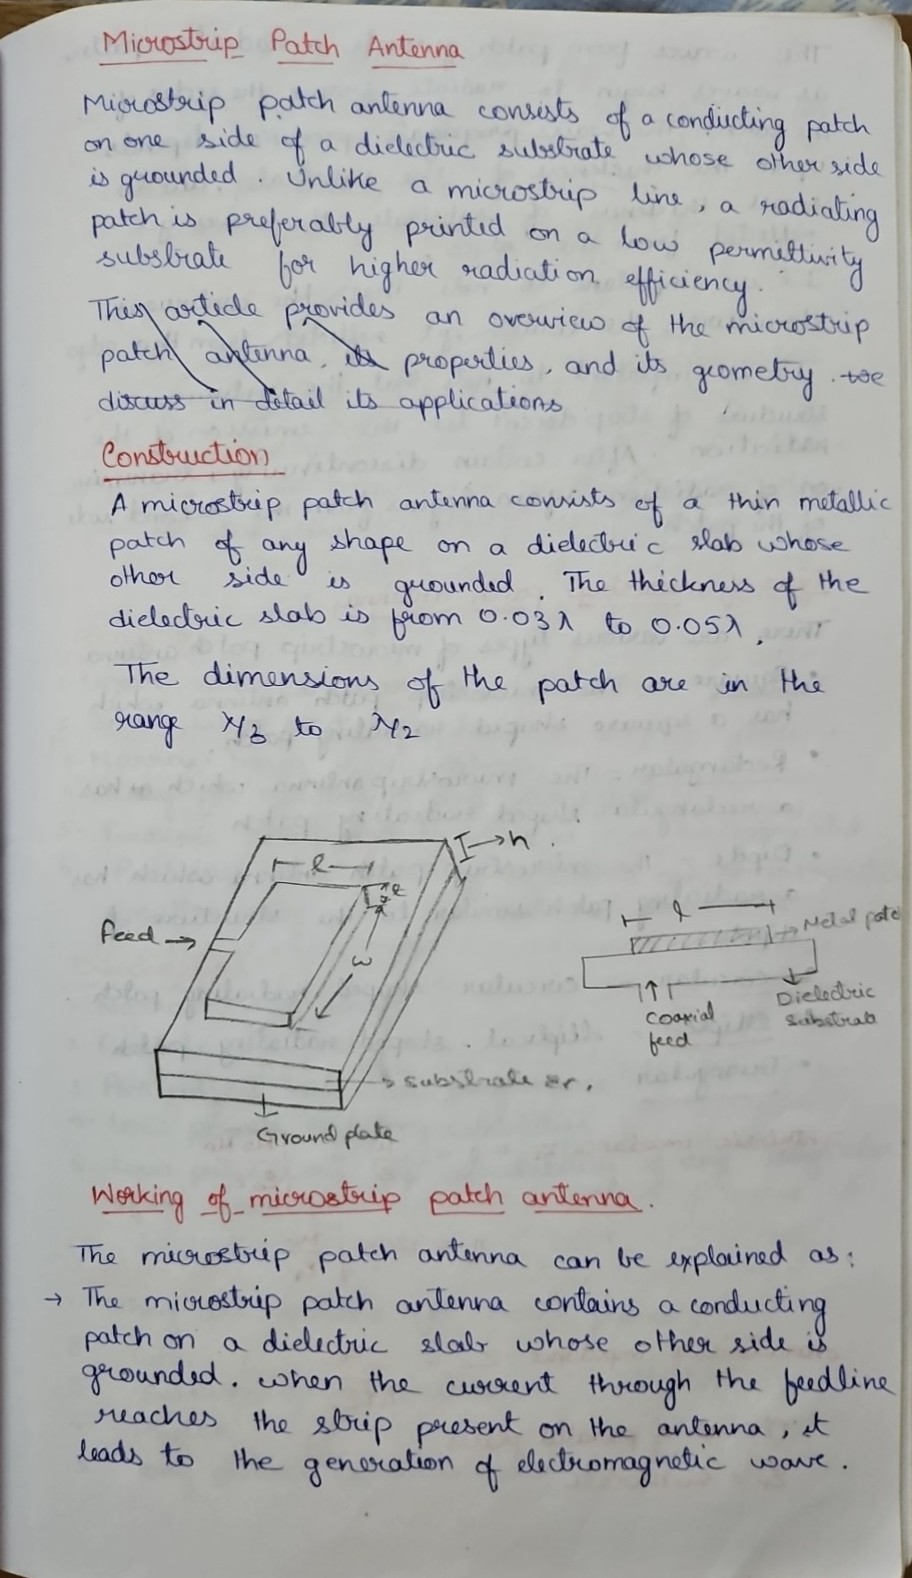 Microstrip Patch Antenna
Microstrip patch antenna consists of a conducting patch
on one side of a dielectric substrate whose other side
is grounded. Unlike a microstrip line, a radiating
patch is preferably printed on a low permittivity
substrate for higher radiation efficiency.
This article provides an overview of the microstrip
patch antenna, its properties, and its geometry. we
discuss in detail its applications
Construction
A microstrip patch antenna consists of a thin metallic
patch of any shape on a dielectric slab whose
other side is grounded. The thickness of the
dielectric slab is from 0.03λ to 0.05λ.
The dimensions of the patch are in the
range λ/3 to λ/2
h
l
t
feed
w
substrate εr.
Ground plate
l
Metal patch
Dielectric
substrate
coaxial
feed
Working of microstrip patch antenna.
The microstrip patch antenna can be explained as:
→ The microstrip patch antenna contains a conducting
patch on a dielectric slab whose other side is
grounded. when the current through the feedline
reaches the strip present on the antenna, it
leads to the generation of electromagnetic wave.